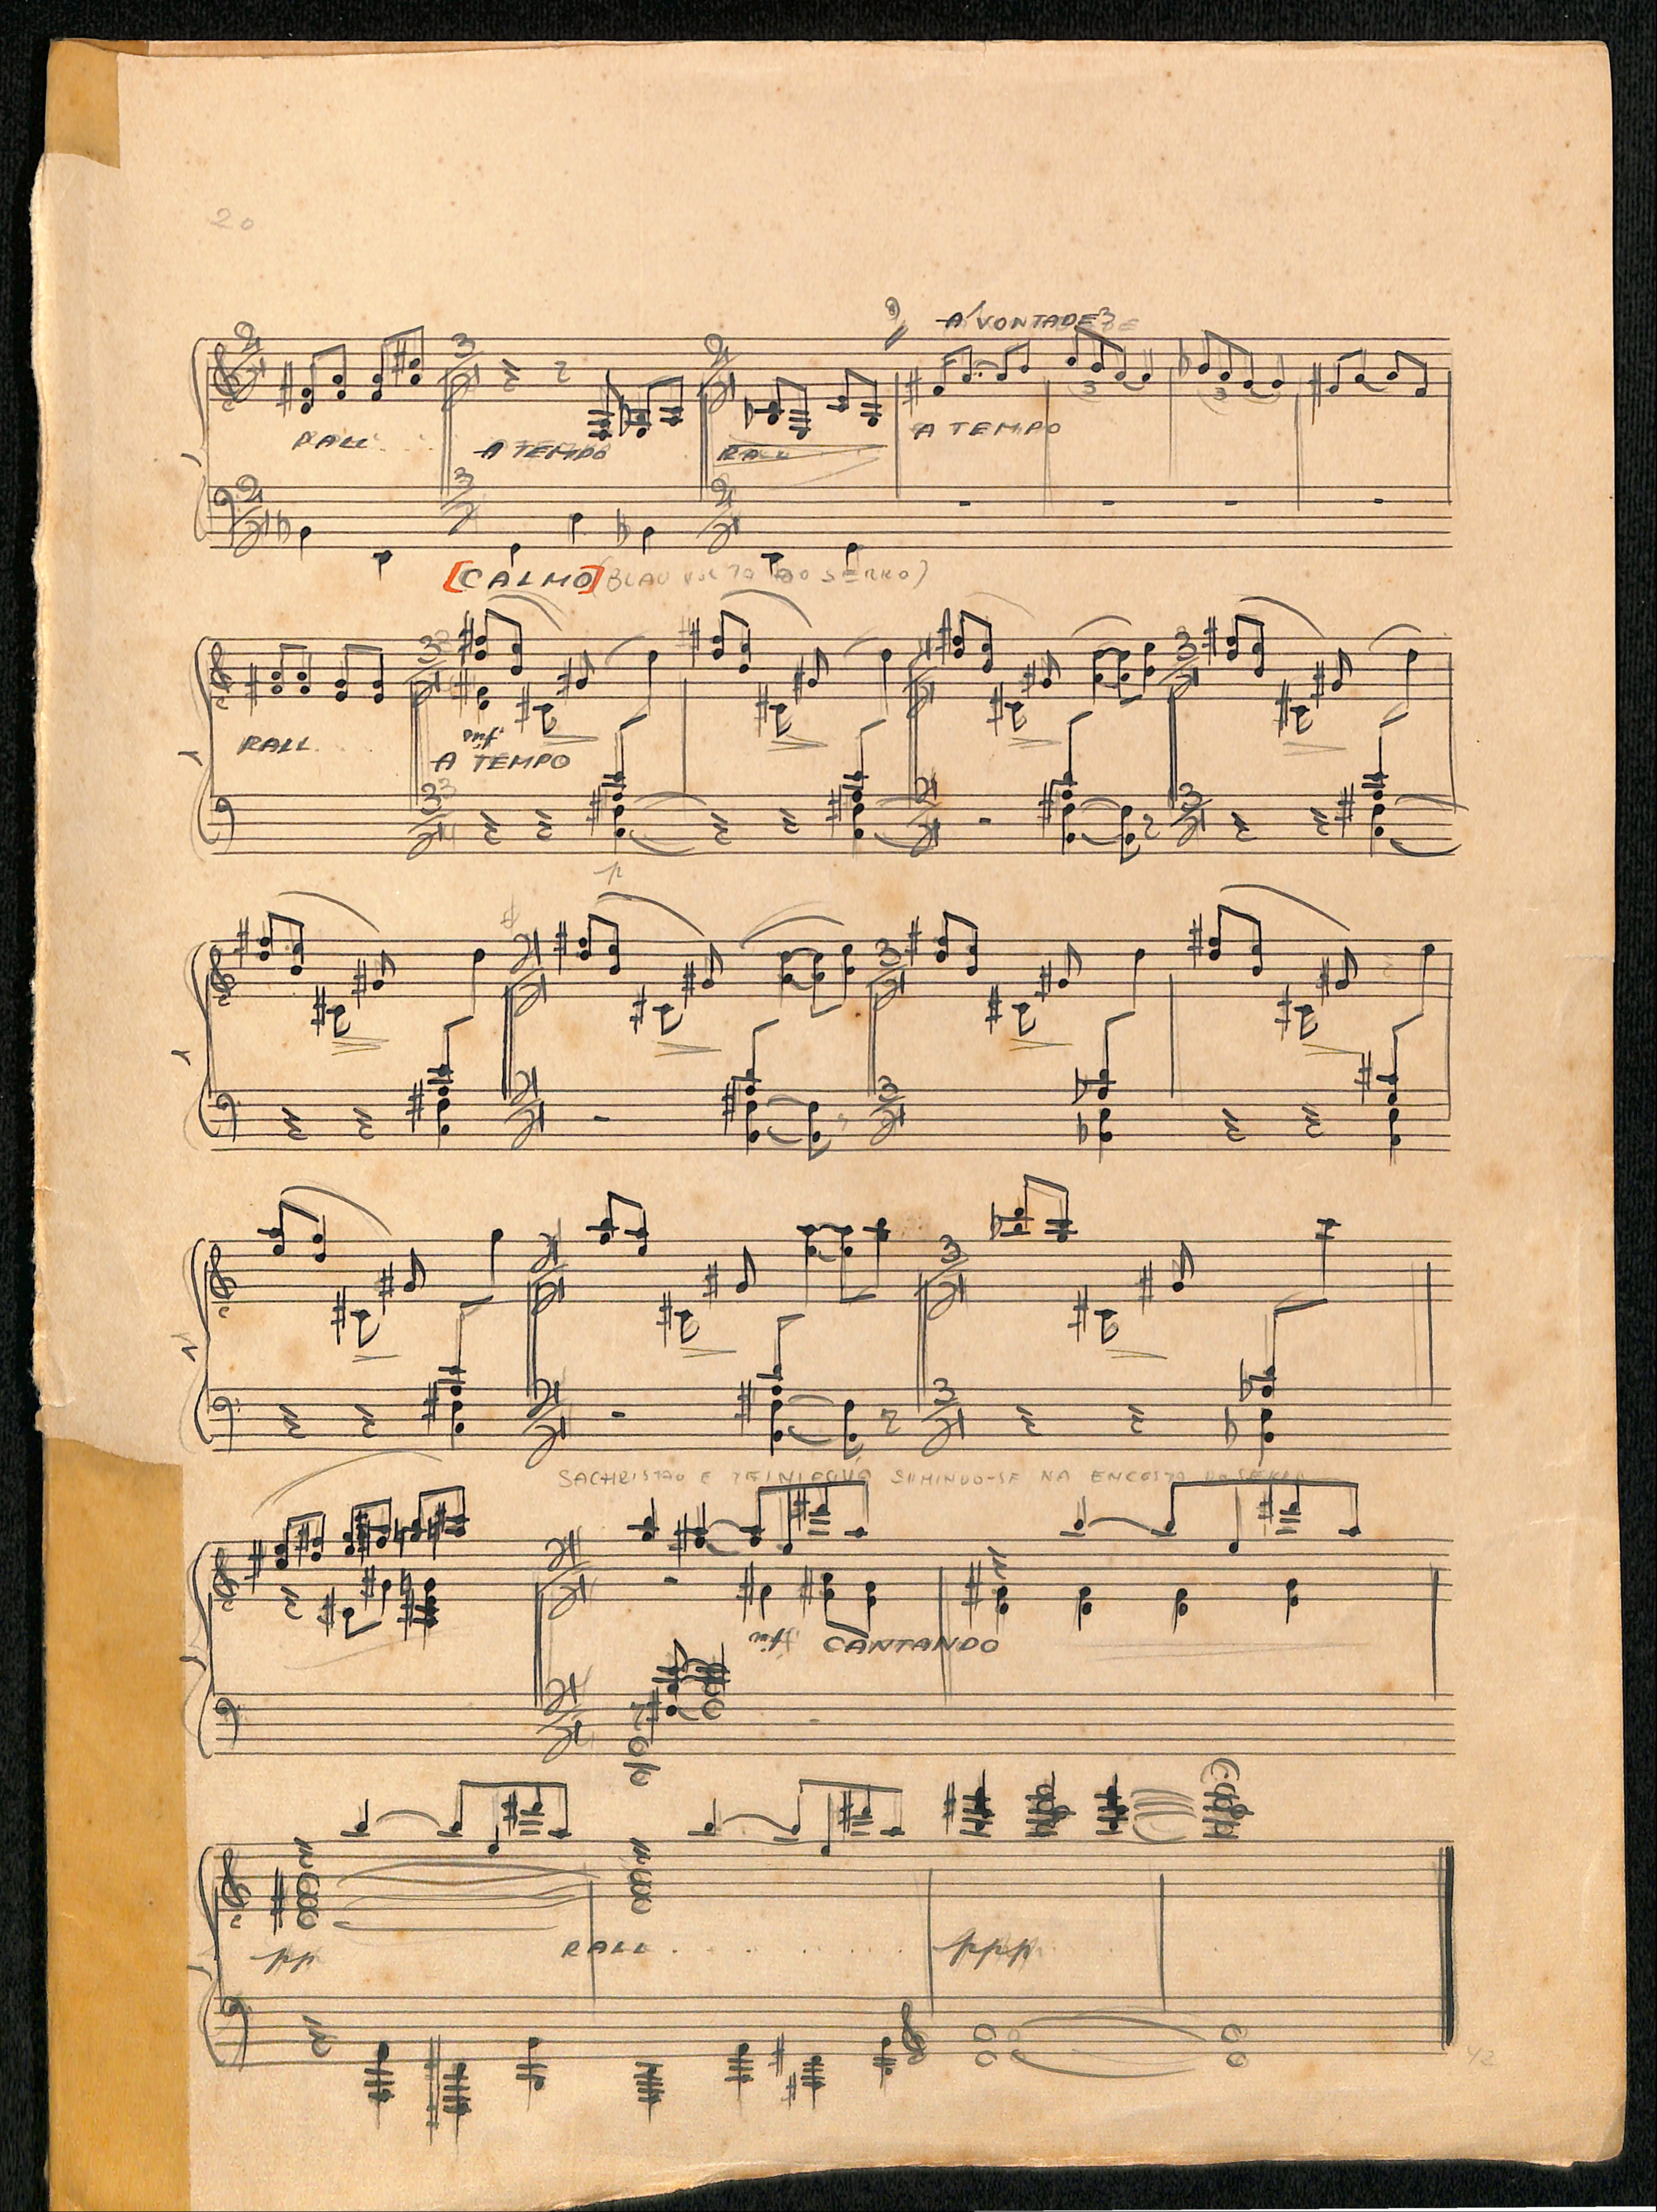 20
A' VONTADE
RALL....
A TEMPO
RALL....
A TEMPO
[CALMO] (BLAU VOLTA AO SERRO)
RALL....
mf
A TEMPO
p
SACHRISTÃO E TEINIAGUÁ SUMINDO-SE NA ENCOSTA DO SERRO
mf CANTANDO
pp
RALL.......
ppp
42